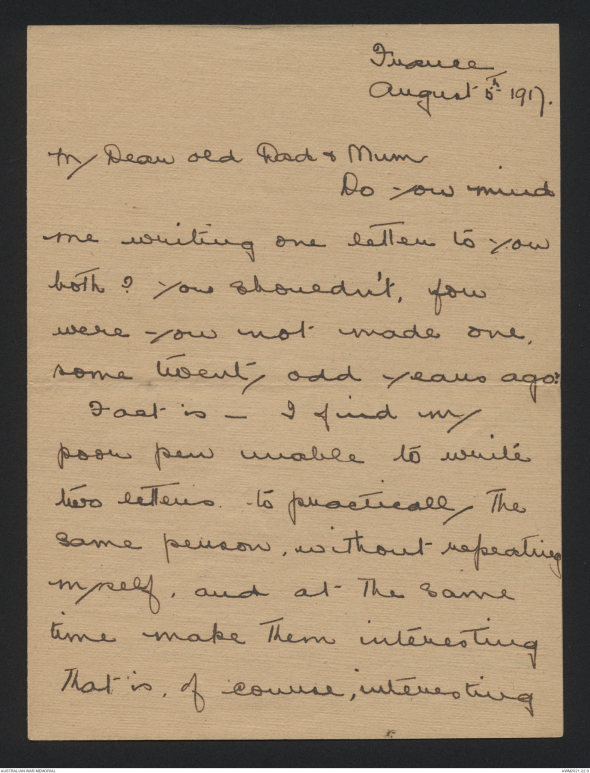 France
August 5th 1917.
My Dear old Dad & Mum
Do you mind
me writing one letter to you
both? You shouldn't, for
were you not made one,
some twenty odd years ago?
Fact is — I find my
poor pen unable to write
two letters to practically the
same person, without repeating
myself, and at the same
time make them interesting
That is, of course, interesting
AUSTRALIAN WAR MEMORIAL